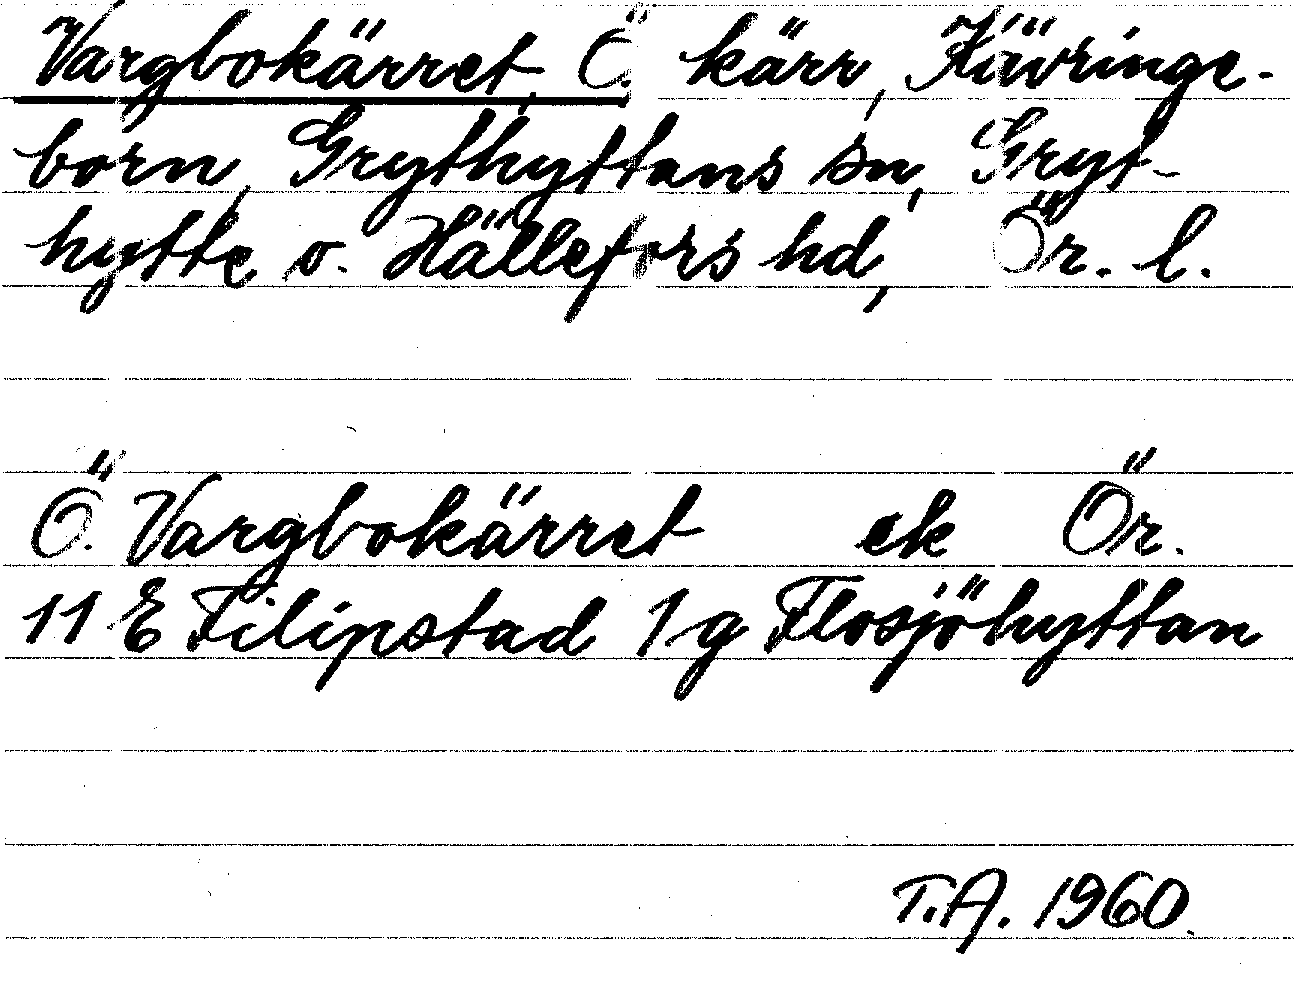 Vargbokärret, Ö. kärr, Kävringe-
born, Grythyttans sn, Gryt-
hytte o. Hällefors hd, Ör. l.
Ö. Vargbokärret ek Ör.
11 E Filipstad 1 g Flosjöhyttan
T.A. 1960.